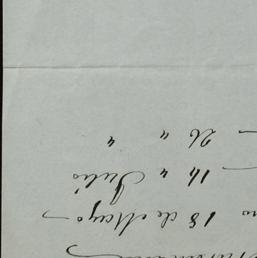 18 de Mayo -
14 " Julio
26 " "